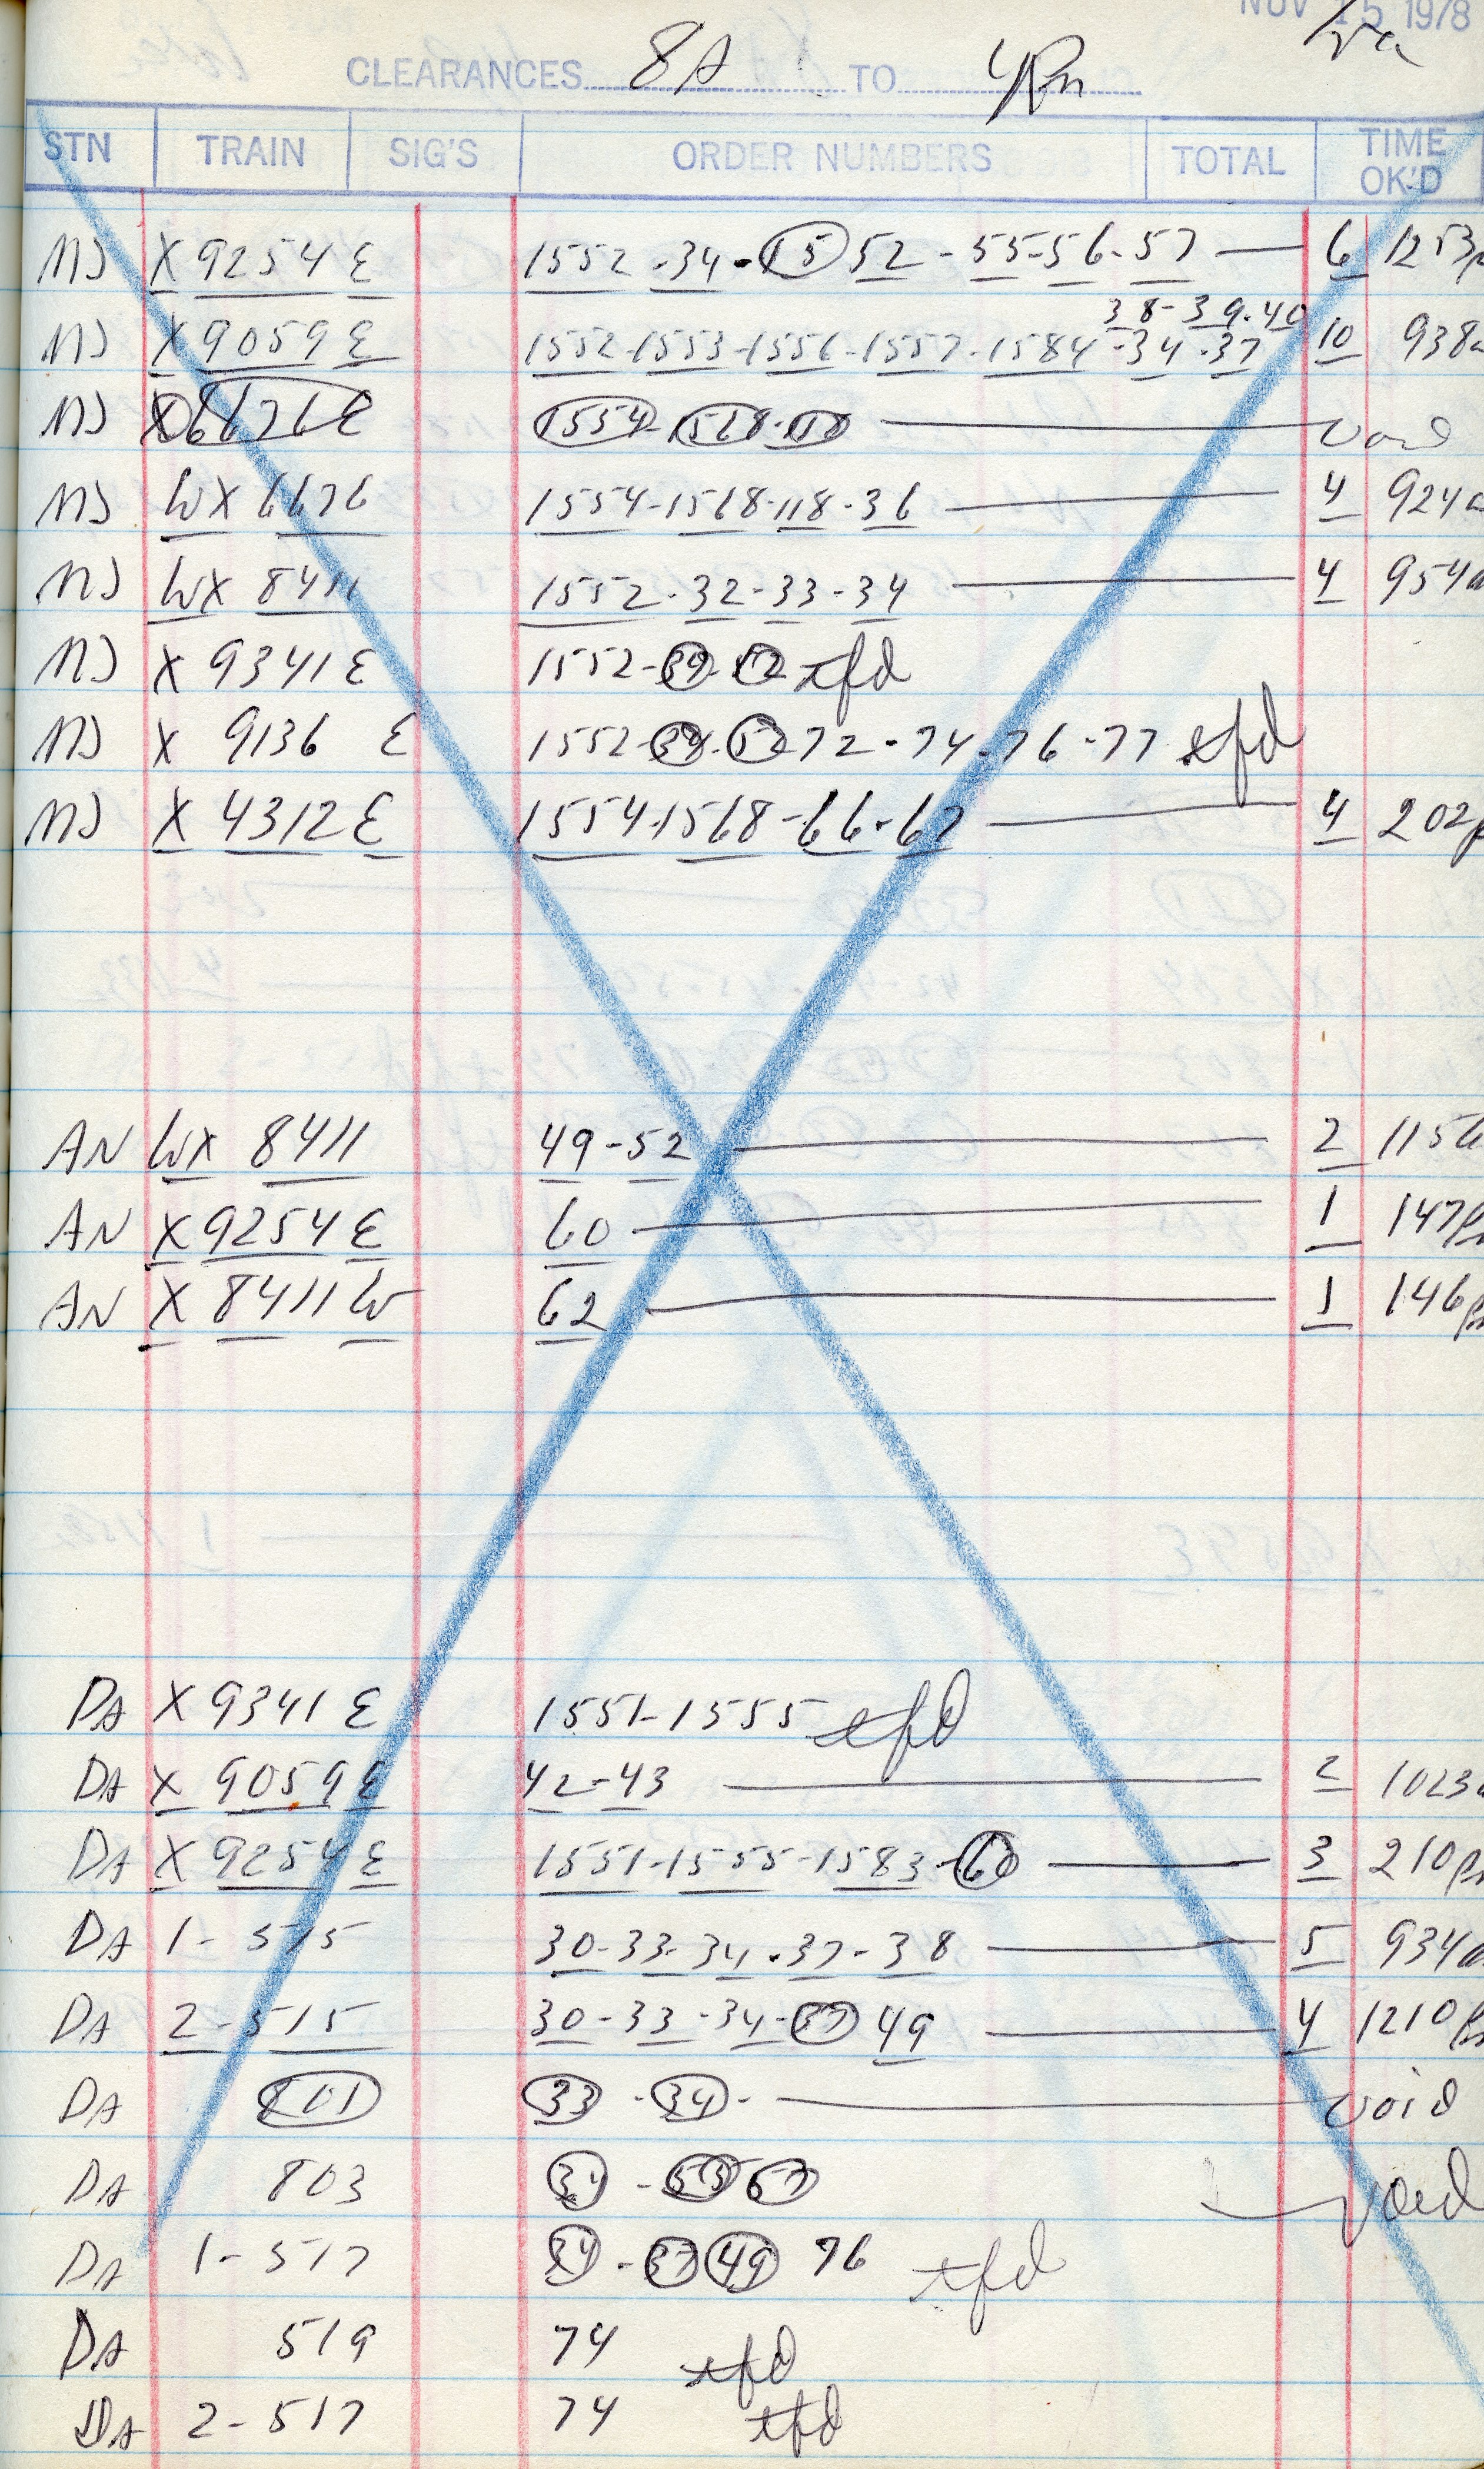 NOV 15 1978
CLEARANCES 8A TO 4Pm
STN TRAIN SIG'S ORDER NUMBERS TOTAL TIME OK'D
MJ X 9254 E 1552-34-15 52-55-56-57 6 1253p
38-39-40
MJ X 9059 E 1552-1553-1556-1557-1584-34-37 10 938a
MJ X 6676 E 1554-1568-118 void
MJ WX 6676 1554-1568-118-36 4 924a
MJ WX 8411 1552-32-33-34 4 954a
MJ X 9341 E 1552-34-52 tfd
MJ X 9136 E 1552-34-52 72-74-76-77 tfd
MJ X 4312 E 1554-1568-66-67 4 202p
AN WX 8411 49-52 2 115
AN X 9254 E 60 1 147pm
AN X 8411 W 62 1 146pm
DA X 9341 E 1551-1555 tfd
DA X 9059 E 42-43 2 1023a
DA X 9254 E 1551-1555-1583-60 3 210pm
DA 1-515 30-33-34-37-38 5 934a
DA 2-515 30-33-34-37 49 4 1210pm
DA 801 33-34- void
DA 803 34-53 57 void
DA 1-517 34-37 49 76 tfd
DA 519 74 tfd
DA 2-517 74 tfd